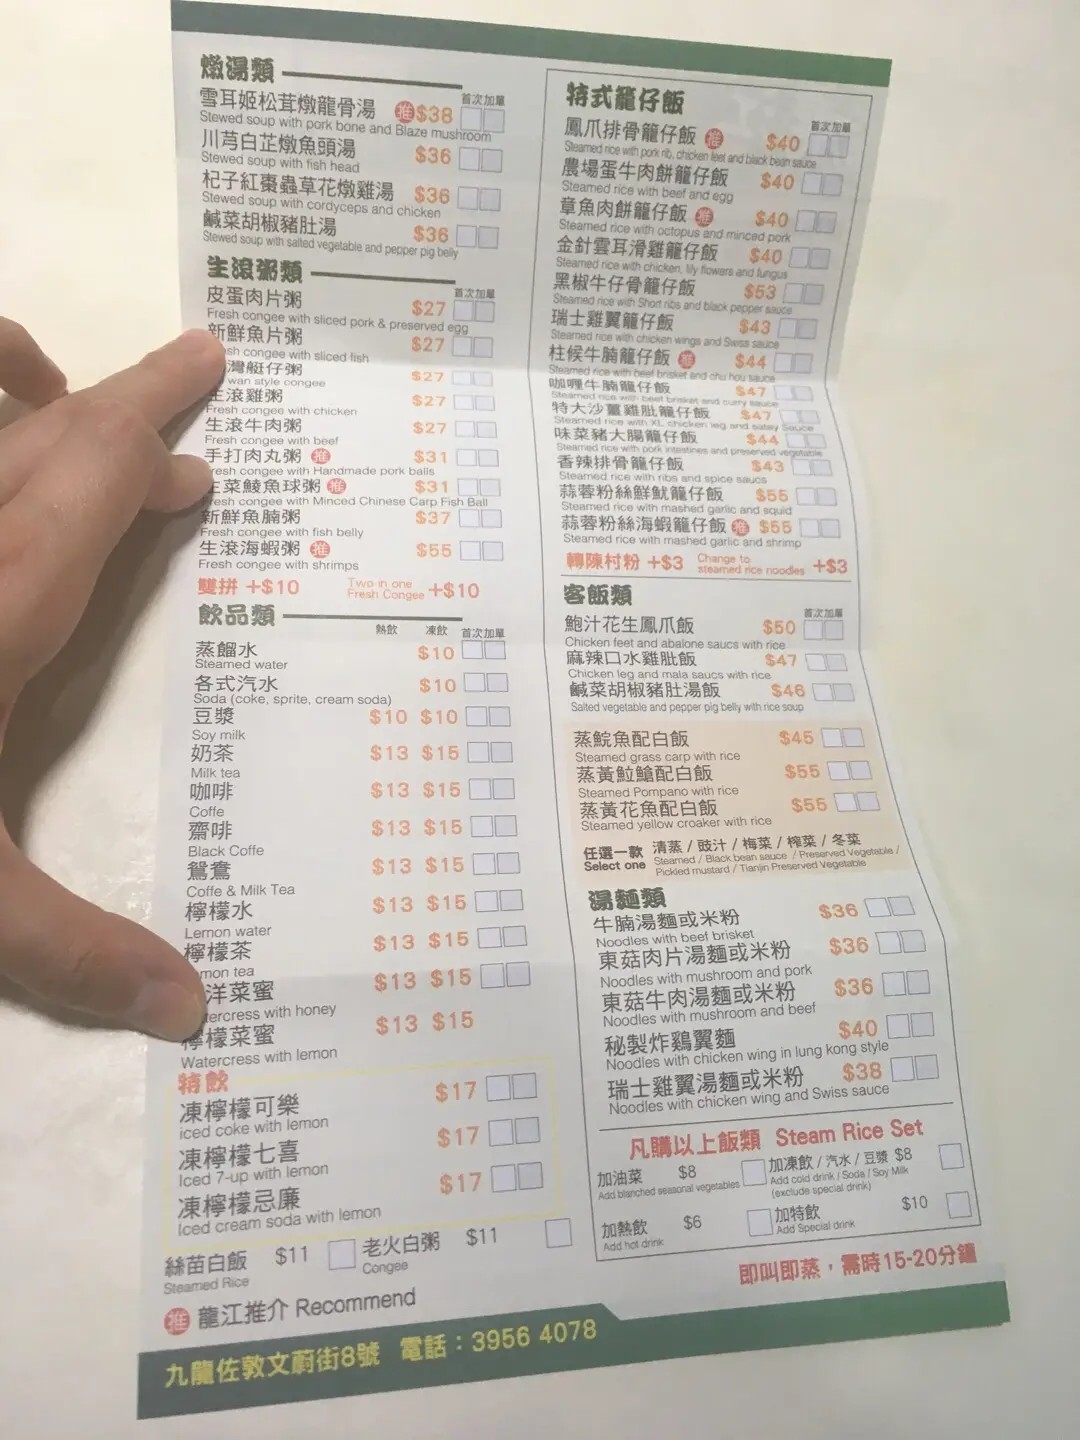 燉湯類
首次加單
雪耳姬松茸燉龍骨湯 推 $38
Stewed soup with pork bone and Blaze mushroom
川芎白芷燉魚頭湯 $36
Stewed soup with fish head
杞子紅棗蟲草花燉雞湯 $36
Stewed soup with cordyceps and chicken
鹹菜胡椒豬肚湯 $36
Stewed soup with salted vegetable and pepper pig belly
生滾粥類
首次加單
皮蛋肉片粥 $27
Fresh congee with sliced pork & preserved egg
新鮮魚片粥 $27
sh congee with sliced fish
灣艇仔粥 $27
wan style congee
生滾雞粥 $27
Fresh congee with chicken
生滾牛肉粥 $27
Fresh congee with beef
手打肉丸粥 推 $31
Fresh congee with Handmade pork balls
生菜鯪魚球粥 推 $31
Fresh congee with Minced Chinese Carp Fish Ball
新鮮魚腩粥 $37
Fresh congee with fish belly
生滾海蝦粥 推 $55
Fresh congee with shrimps
雙拼 +$10 Two in one Fresh Congee +$10
飲品類
熱飲 凍飲 首次加單
蒸餾水 $10
Steamed water
各式汽水 $10
Soda (coke, sprite, cream soda)
豆漿 $10 $10
Soy milk
奶茶 $13 $15
Milk tea
咖啡 $13 $15
Coffe
齋啡 $13 $15
Black Coffe
鴛鴦 $13 $15
Coffe & Milk Tea
檸檬水 $13 $15
Lemon water
檸檬茶 $13 $15
mon tea
洋菜蜜 $13 $15
tercress with honey
檸檬菜蜜 $13 $15
Watercress with lemon
特飲
凍檸檬可樂 $17
iced coke with lemon
凍檸檬七喜 $17
Iced 7-up with lemon
凍檸檬忌廉 $17
Iced cream soda with lemon
絲苗白飯 $11 老火白粥 $11
Steamed Rice Congee
推 龍江推介 Recommend
特式籠仔飯
首次加單
鳳爪排骨籠仔飯 推 $40
Steamed rice with pork rib, chicken feet and black bean sauce
農場蛋牛肉餅籠仔飯 $40
Steamed rice with beef and egg
章魚肉餅籠仔飯 推 $40
Steamed rice with octopus and minced pork
金針雲耳滑雞籠仔飯 $40
Steamed rice with chicken, lily flowers and fungus
黑椒牛仔骨籠仔飯 $53
Steamed rice with Short ribs and black pepper sauce
瑞士雞翼籠仔飯 $43
Steamed rice with chicken wings and Swiss sauce
柱候牛腩籠仔飯 推 $44
Steamed rice with beef brisket and chu hou sauce
咖喱牛腩籠仔飯 $47
Steamed rice with beef brisket and curry sauce
特大沙薑雞肶籠仔飯 $47
Steamed rice with XL chicken leg and satay Sauce
味菜豬大腸籠仔飯 $44
Steamed rice with pork intestines and preserved vegetable
香辣排骨籠仔飯 $43
Steamed rice with ribs and spice saucs
蒜蓉粉絲鮮魷籠仔飯 $55
Steamed rice with mashed garlic and squid
蒜蓉粉絲海蝦籠仔飯 推 $55
Steamed rice with mashed garlic and shrimp
轉陳村粉 +$3 Change to steamed rice noodles +$3
客飯類
首次加單
鮑汁花生鳳爪飯 $50
Chicken feet and abalone saucs with rice
麻辣口水雞肶飯 $47
Chicken leg and mala saucs with rice
鹹菜胡椒豬肚湯飯 $46
Salted vegetable and pepper pig belly with rice soup
蒸鯇魚配白飯 $45
Steamed grass carp with rice
蒸黃䱽鯧配白飯 $55
Steamed Pompano with rice
蒸黃花魚配白飯 $55
Steamed yellow croaker with rice
任選一款 清蒸 / 豉汁 / 梅菜 / 榨菜 / 冬菜
Select one Steamed / Black bean sauce / Preserved Vegetable /
Pickled mustard / Tianjin Preserved Vegetable
湯麵類
牛腩湯麵或米粉 $36
Noodles with beef brisket
東菇肉片湯麵或米粉 $36
Noodles with mushroom and pork
東菇牛肉湯麵或米粉 $36
Noodles with mushroom and beef
秘製炸鷄翼麵 $40
Noodles with chicken wing in lung kong style
瑞士雞翼湯麵或米粉 $38
Noodles with chicken wing and Swiss sauce
凡購以上飯類 Steam Rice Set
加油菜 $8 加凍飲 / 汽水 / 豆漿 $8
Add blanched seasonal vegetables Add cold drink / Soda / Soy Milk
(exclude special drink)
加熱飲 $6 加特飲 $10
Add hot drink Add Special drink
即叫即蒸，需時15-20分鐘
九龍佐敦文蔚街8號 電話：3956 4078